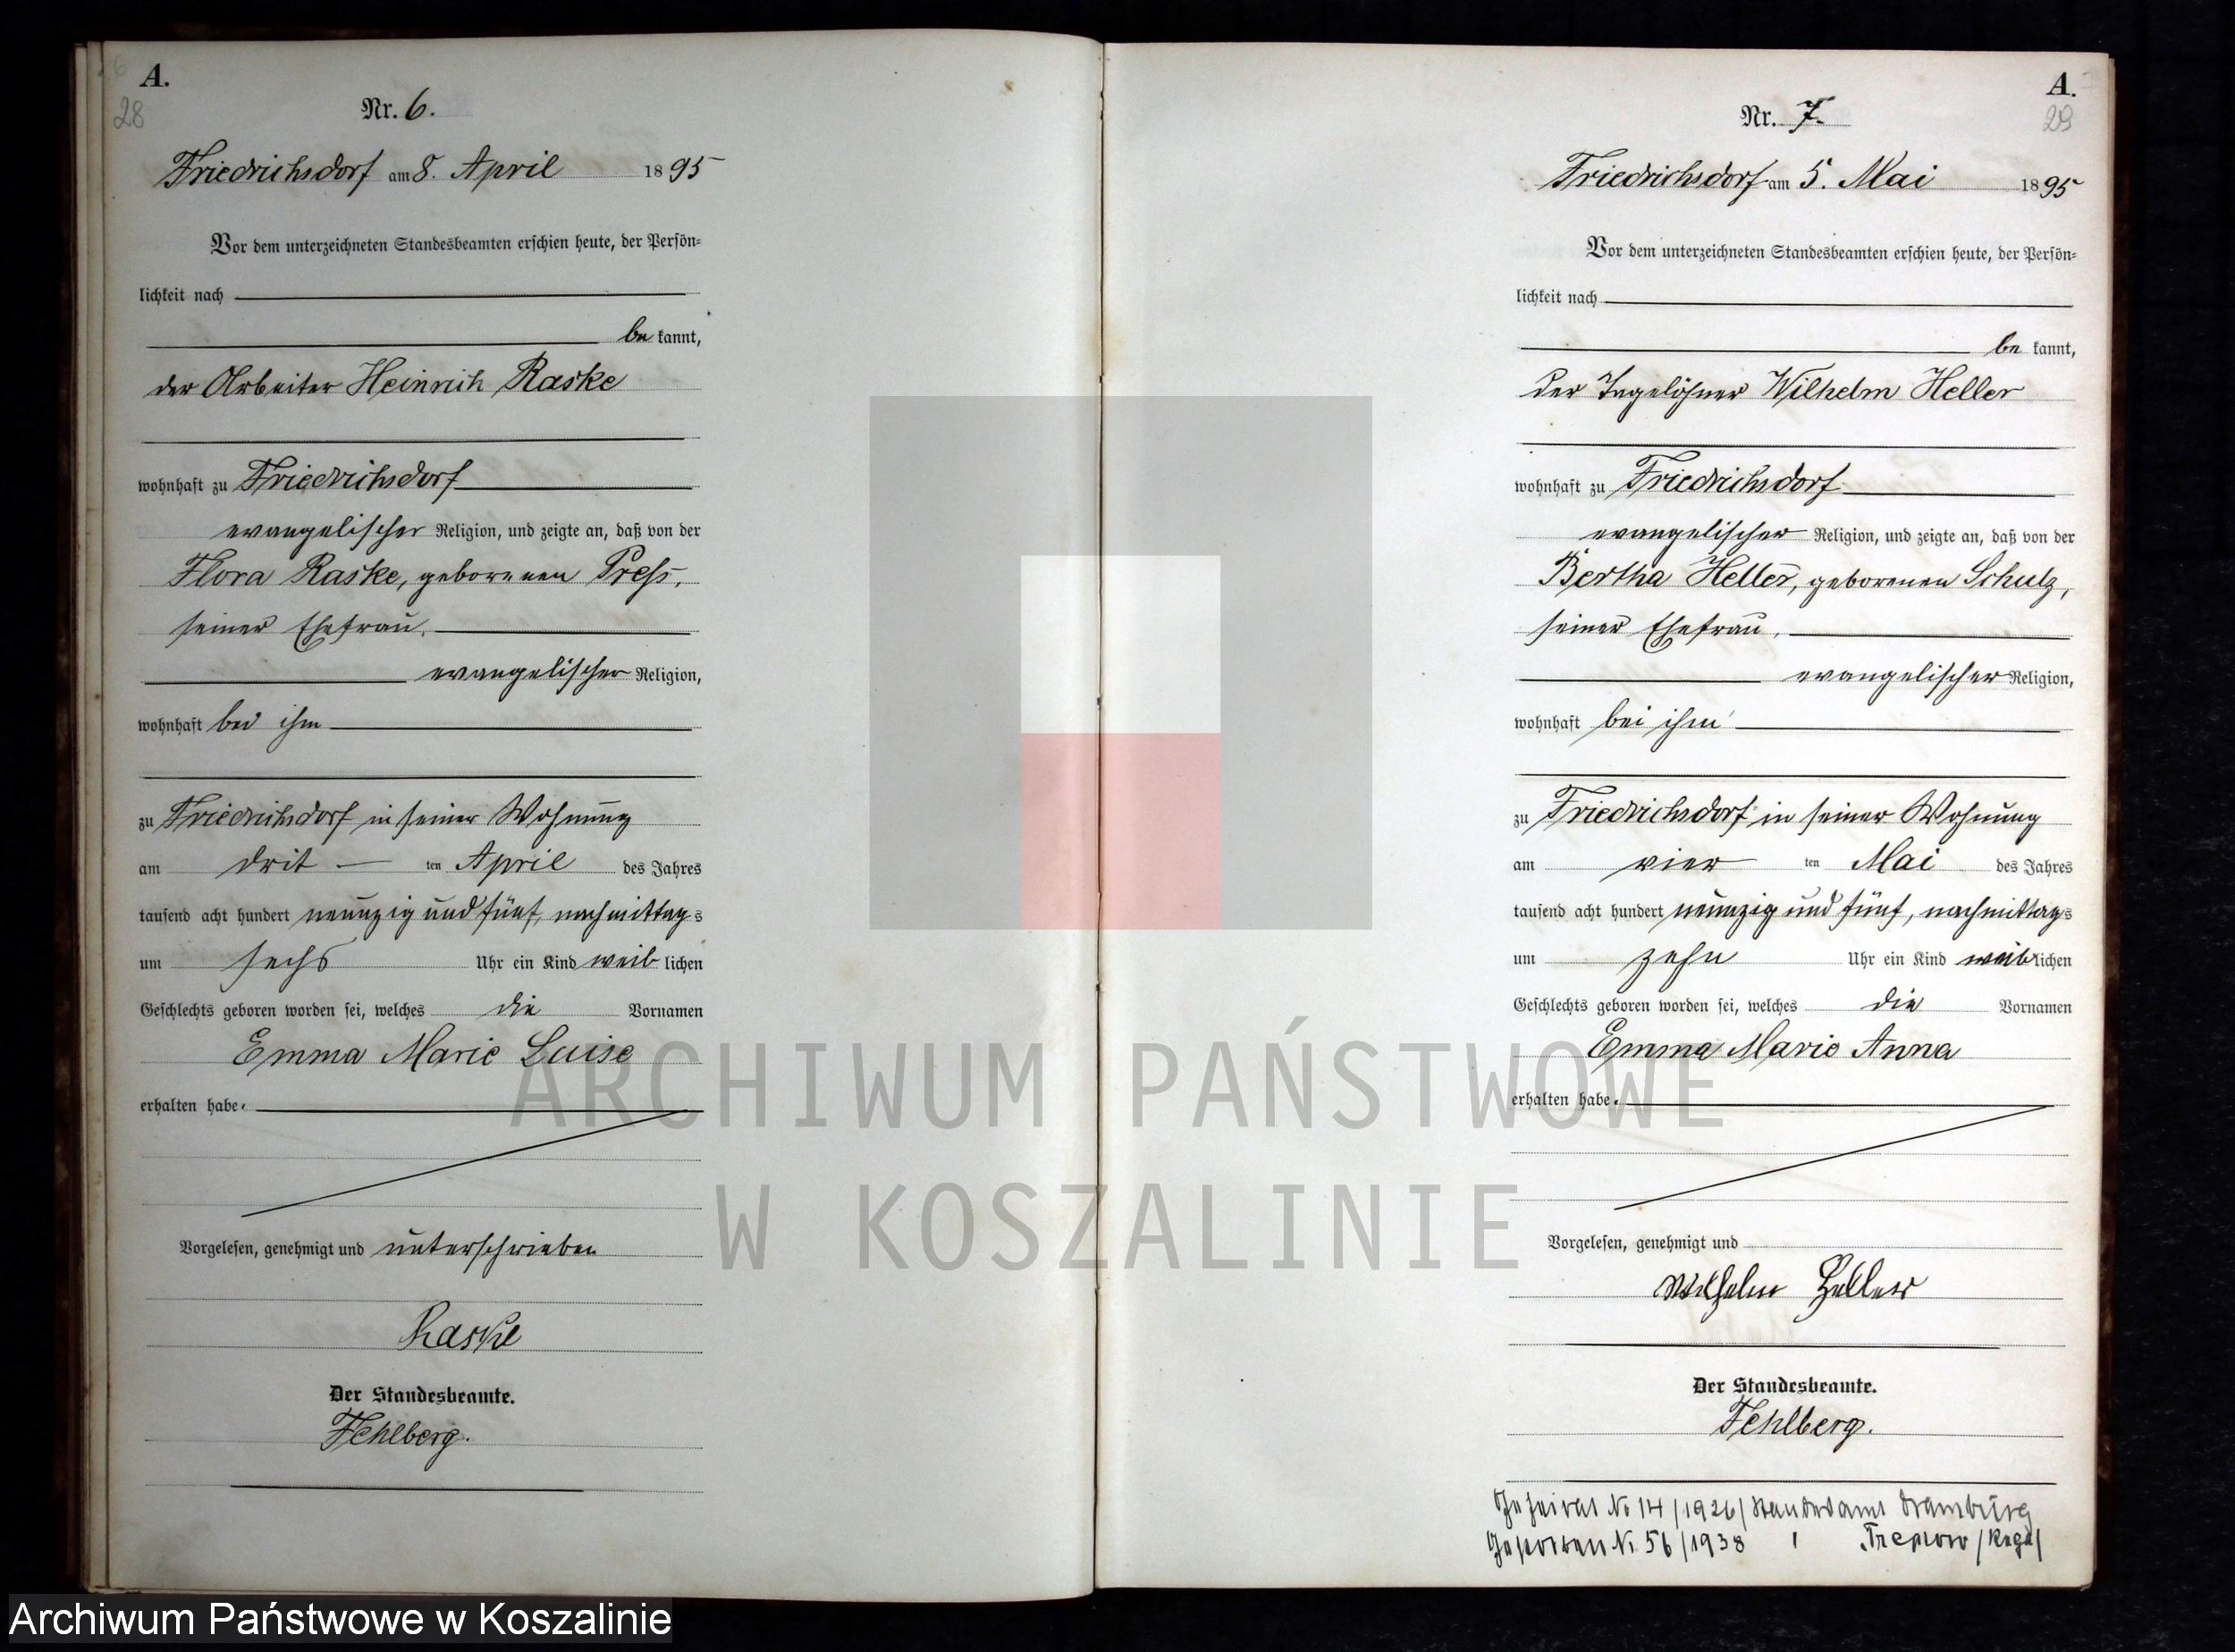 A.
28
Nr. 6.
Friedrichsdorf am 8. April 1895
Vor dem unterzeichneten Standesbeamten erschien heute, der Persön=
lichkeit nach
be kannt,
der Arbeiter Heinrich Raske
wohnhaft zu Friedrichsdorf
evangelischer Religion, und zeigte an, daß von der
Flora Raske, geborenen Press,
seiner Ehefrau,
evangelischer Religion,
wohnhaft bei ihm
zu Friedrichsdorf in seiner Wohnung
am drit ten April des Jahres
tausend acht hundert neunzig und fünf, nachmittags
um sechs Uhr ein Kind weiblichen
Geschlechts geboren worden sei, welches die Vornamen
Emma Marie Luise
erhalten habe.
Vorgelesen, genehmigt und unterschrieben
Raske
Der Standesbeamte.
Fehlberg.
A.
29
Nr. 7.
Friedrichsdorf am 5. Mai 1895
Vor dem unterzeichneten Standesbeamten erschien heute, der Persön=
lichkeit nach
be kannt,
der Tagelöhner Wilhelm Heller
wohnhaft zu Friedrichsdorf
evangelischer Religion, und zeigte an, daß von der
Bertha Heller, geborenen Schulz,
seiner Ehefrau,
evangelischer Religion,
wohnhaft bei ihm
zu Friedrichsdorf in seiner Wohnung
am vier ten Mai des Jahres
tausend acht hundert neunzig und fünf, nachmittags
um zehn Uhr ein Kind weiblichen
Geschlechts geboren worden sei, welches die Vornamen
Emma Marie Anna
erhalten habe.
Vorgelesen, genehmigt und
Wilhelm Heller
Der Standesbeamte.
Fehlberg.
Geheirat No 14/1926/Standesamt Dramburg
Gestorben N. 56/1938 " Treptow/Rega/
ARCHIWUM PAŃSTWOWE
W KOSZALINIE
Archiwum Państwowe w Koszalinie